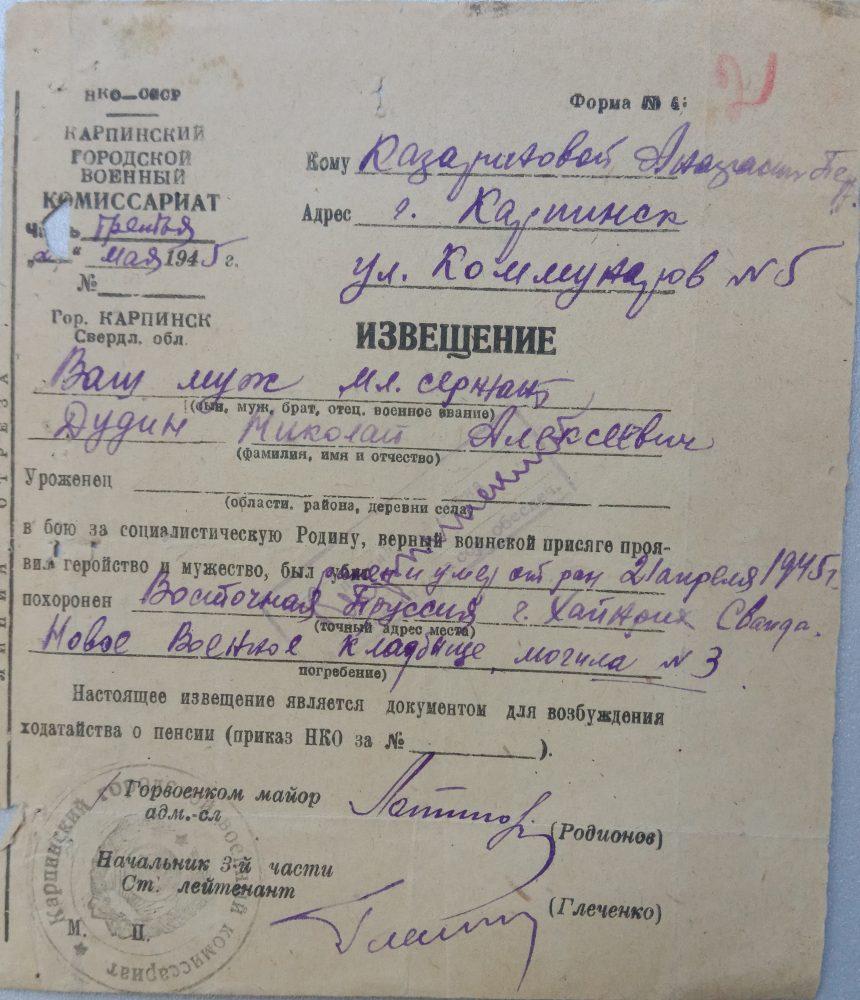 НКО—СССР
КАРПИНСКИЙ
ГОРОДСКОЙ
ВОЕННЫЙ
КОМИССАРИАТ
Третья
мая 1945 г.
№
Гор. КАРПИНСК
Свердл. обл.
Форма № 4
Кому Казариновой
Адрес г. Карпинск
ул. Коммунаров № 5
ИЗВЕЩЕНИЕ
Ваш муж мл. сержант
(сын, муж, брат, отец, военное звание)
Дудин Николай Алексеевич
(фамилия, имя и отчество)
Уроженец
(области, района, деревни села)
в бою за социалистическую Родину, верный воинской присяге проя-
вил геройство и мужество, был ранен и умер от ран 21 апреля 1945 г.
похоронен Восточная Пруссия г.
(точный адрес места)
Новое Военное кладбище могила № 3
погребение)
Настоящее извещение является документом для возбуждения
ходатайства о пенсии (приказ НКО за № ).
Горвоенком майор
адм.-сл
(Родионов)
Начальник 3-й части
Ст. лейтенант
(Глеченко)
М. П.
Карпинский городской военный комиссариат
ЛИНИЯ ОТРЕЗА